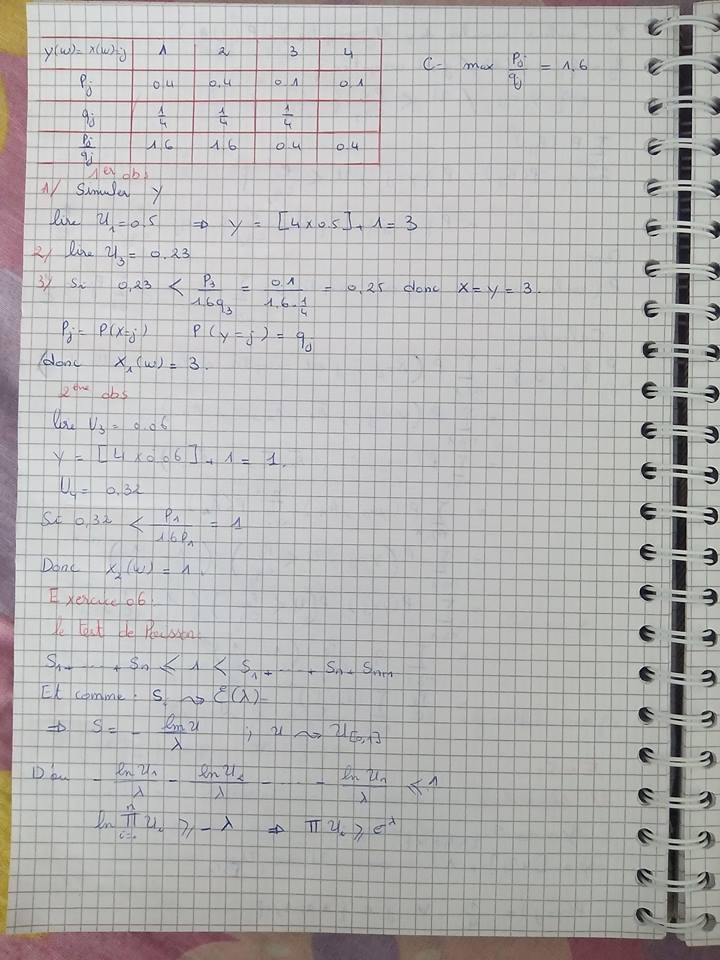 y(w)= x(w)=j 1 2 3 4
Pj 0.4 0.4 0.1 0.1
qj 1/4 1/4 1/4
Pj/qj 1.6 1.6 0.4 0.4
C= max Pj/qj = 1,6
1er obs
1/ Simuler Y
lire U1=0.5 ⇒ Y = [4x0.5]+1=3
2/ lire U3= 0.23
3/ Si 0,23 < P3/1.6q3 = 0.1/1.6·1/4 = 0.25 donc X=Y=3.
Pj= P(X=j) P(Y=j)= qj
donc X1(w)=3.
2ème obs
lire U3= 0.06
Y = [4x0.06]+1=1.
U4= 0.32
Si 0,32 < P1/1.6P1 = 1
Donc X2(w)=1.
Exercice 06:
le test de Poisson:
S1+ ---- + Sn ≤ 1 < S1+ ---- + Sn+ Sn+1
Et comme: Si ⇝ Ɛ(λ)
⇒ S= - ln U/λ ; U ⇝ U[0,1]
D'où - ln U1/λ - ln U2/λ - ---- - ln Un/λ ≤ 1
ln ∏ Ui ≥ -λ ⇒ ∏ Ui ≥ e-λ